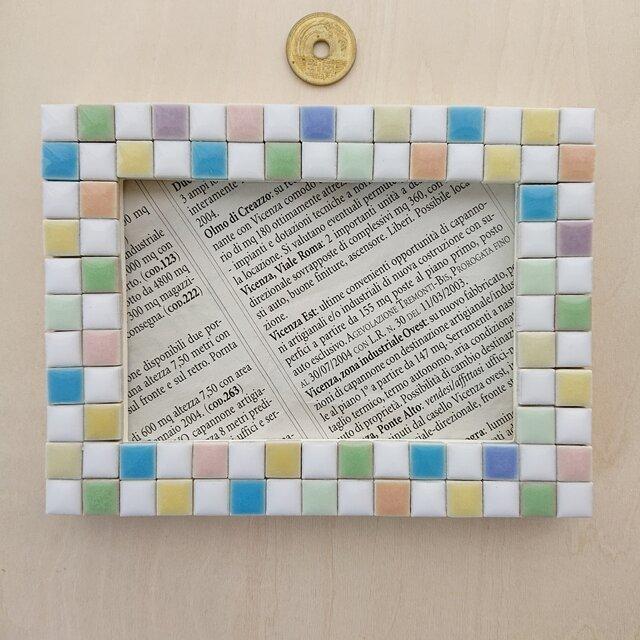 Duc
3 ampi lo
interamente
2004.
Olmo di Creazzo: su re
nante con Vicenza comodo
rio di mq 180 ottimamente attrez
- impianti e dotazioni tecniche a nor
la locazione. Si valutano eventuali permut
Vicenza, Viale Roma: 2 importanti unità a de
direzionale sovrapposte di complessivi mq 360, con
sti auto, buone finiture, ascensore. Liberi. Possibile loca
zione.
Vicenza Est: ultime convenienti opportunità di capanno-
ni artigianali e/o industriali di nuova costruzione con su-
perfici a partire da 155 mq poste al piano primo, posto
auto esclusivo. AGEVOLAZIONE TREMONTI-BIS, PROROGATE FINO
AL 30/07/2004 CON L.R. N. 30 DEL 11/03/2003.
Vicenza, zona industriale Ovest: su nuovo fabbricato, p
zioni di capannone con destinazione artigianale/indus
le al piano 1° a partire da 147 mq. Serramenti a nast
taglio termico, termo autonomo, aria condizionat
si. Possibilità di cambio destinaz
Ponte Alto: vendesi/affittasi uffici-n
nuti dal casello Vicenza ovest, i
ale-direzionale, fronte s
gra: lumin
0 mq
ndustriale
o. (con.123)
otto da 4800 mq
300 mq magazzi-
consegna. (con.222)
one disponibili due por-
una altezza 7,50 metri con
sul fronte e sul retro. Pronta
di 600 mq altezza 7,50 con area
ennaio 2004. (con.263)
VO capannone artigia-
tezza 8 metri predi-